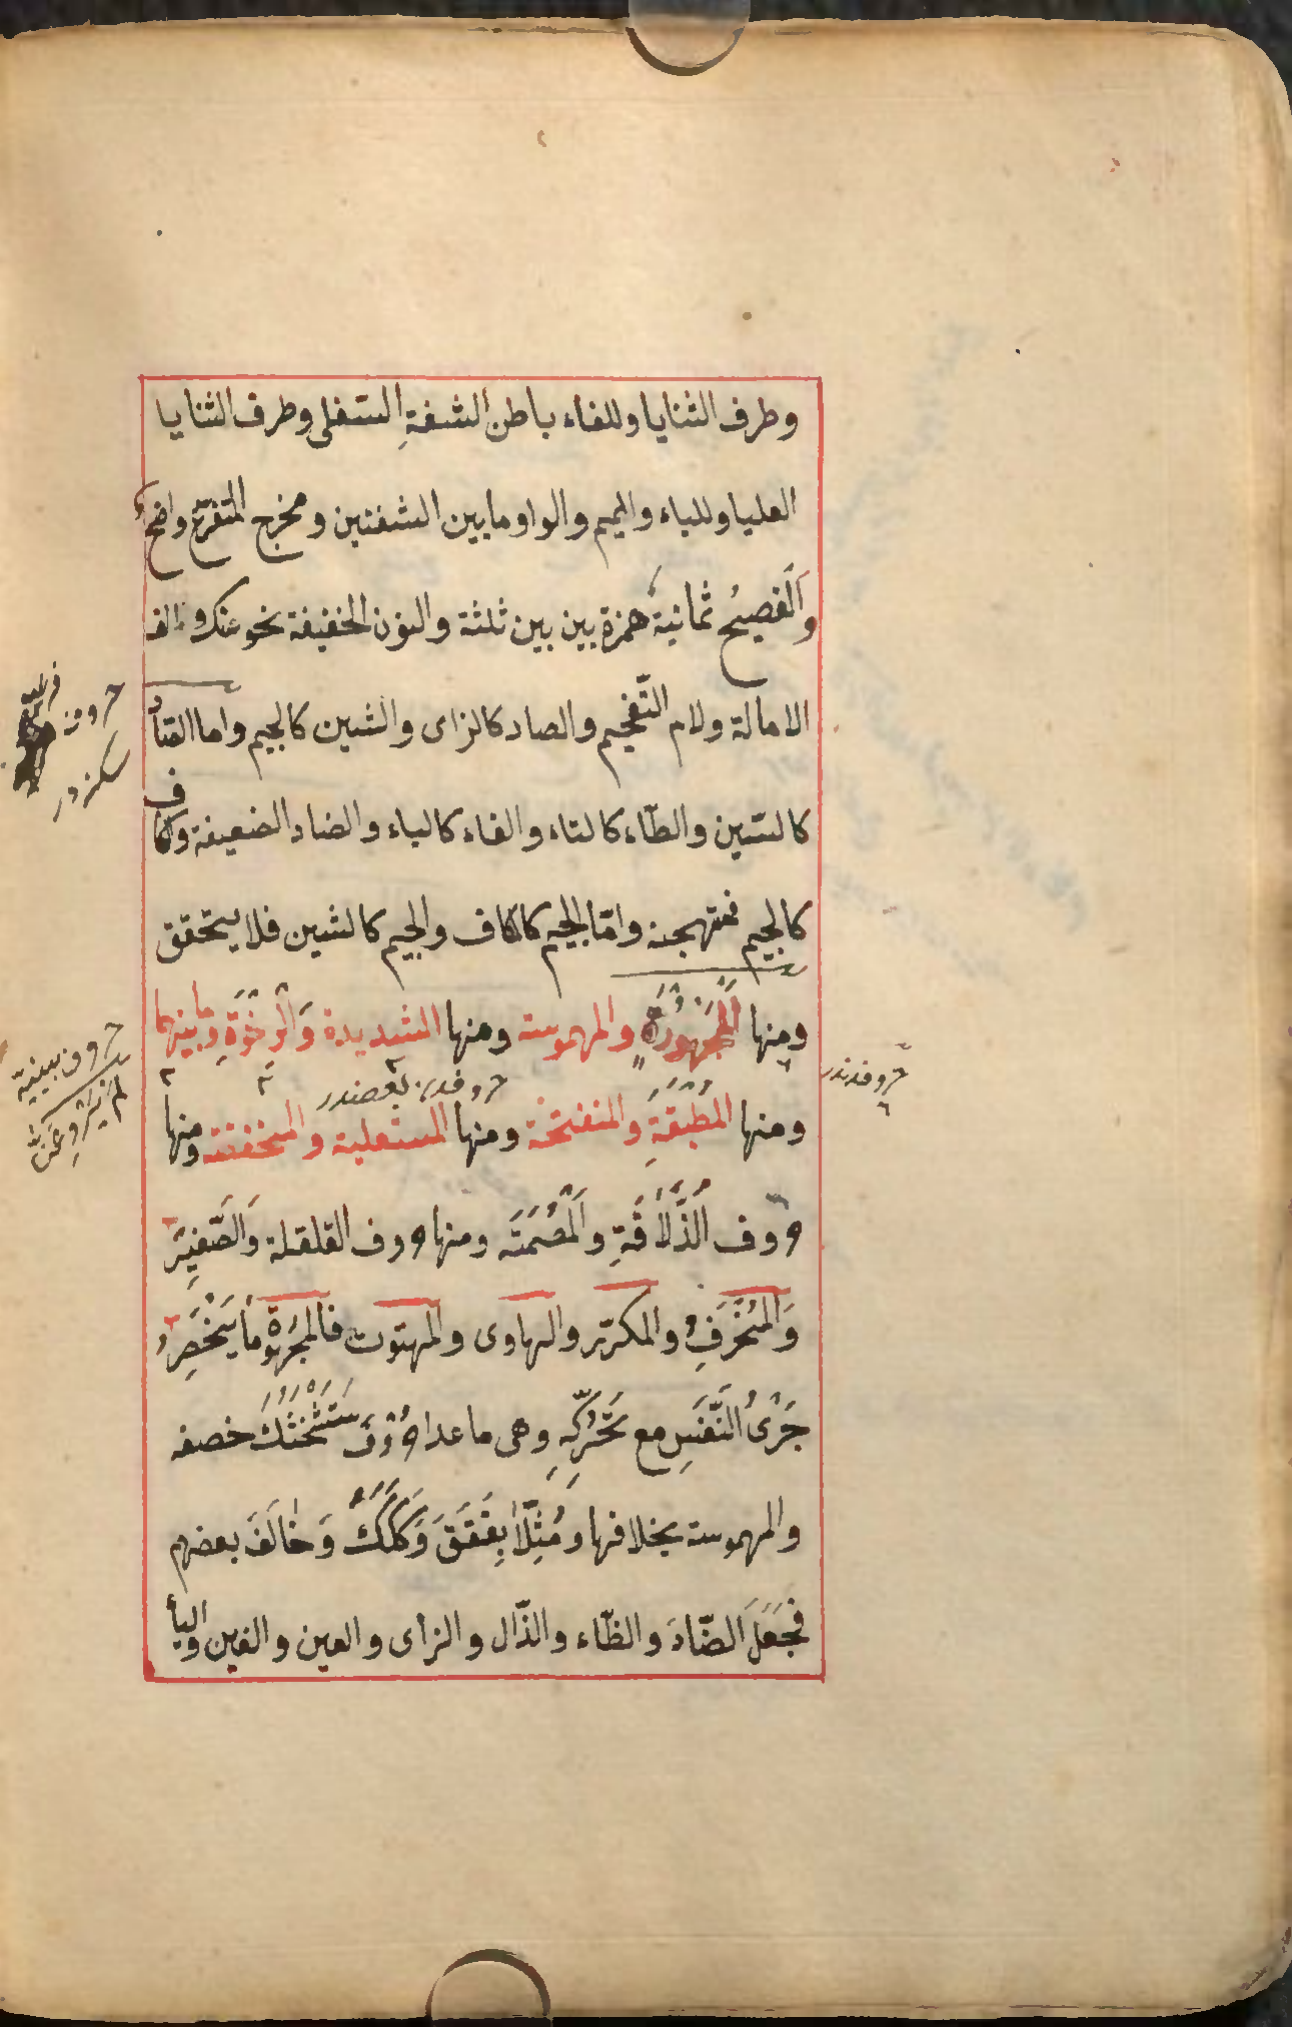 وطرف الثنايا وللفاء باطن الشفةِ السّفلى وطرف الثنايا
العليا وللباء والميم والواو ما بين الشفتين ومخرج المتفرّع واضح
وَالْفصيحُ ثمانية همزة بين بين ثلثة والنون الخفيفة نحو عنك والف
الامالة ولام التّفخيم والصاد كالزاى والشين كالجيم واما الصّاد
كالسّين والطّاء كالتاء والفاء كالباء والضاد الضعيفة والكاف
كالجيم فمتهجنة وامّا الجيم كالكاف والجيم كالشين فلا يتحقق
ومنها الْمَجْهُورَةِ والمهموسة ومنها الشديدة وَالرِّخْوَةِ وما بينهما
ومنها الْمُطْبَقَةِ والمنفتحة ومنها المستعلية والمنخفضة ومنها
حروف الذَّلَاقَةِ والْمُصْمَتَة ومنها حروف القلقلة وَالصَّفِيرِ
وَالْمُنْحَرِفِ والمكرّر والهاوى والمهتوت فالمجهورة ما يَنْحَصِرُ
جَرْىُ النَّفَسِ مع تَحَرُّكِهِ وهى ما عدا حُرُوفَ سَتَشْحَثُكَ خصفه
والمهموسة بخلافها ومُثِّلَا بِقَقَقَ وَكَكَكَ وَخَالَفَ بعضهم
فَجَعَلَ الضّادَ والظّاء والذّال والزاى والعين والغين والياء
حروف فرعية
سكزدر
حروف بينية
لَمْ يَرْوِعَنَّا